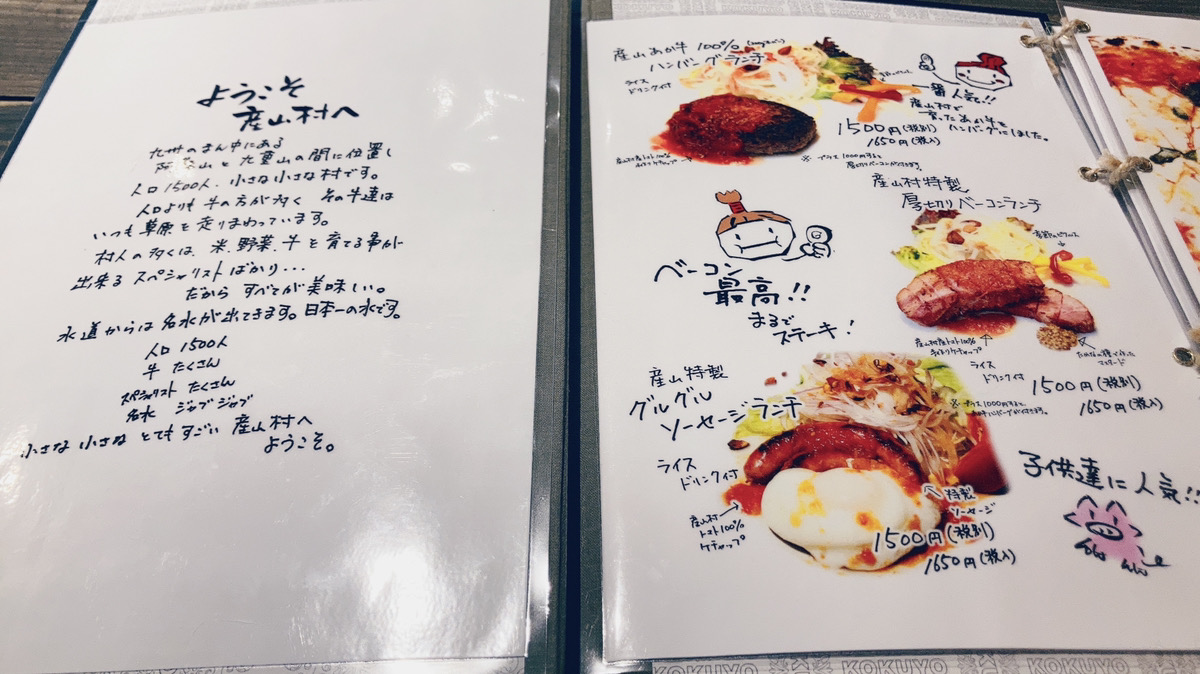 ようこそ
産山村へ
九州のまん中にある
阿蘇山と九重山の間に位置し
人口1500人、小さな小さな村です。
人口よりも牛の方が多く その牛達は
いつも草原を走りまわっています。
村人の多くは、米、野菜、牛を育てる事が
出来るスペシャリストばかり...
だから すべてが美味しい。
水道からは名水が出てきます。日本一の水です。
人口 1500人
牛 たくさん
スペシャリスト たくさん
名水 ジャブジャブ
小さな 小さな とてもすごい 産山村へ
ようこそ。
産山あか牛 100%
ハンバーグランチ
ライス
ドリンク付
一番人気!!
産山村で
育ったあか牛を
ハンバーグにしました。
1500円(税別)
1650円(税込)
※プラス1000円すると
厚切りベーコンが付きます。
産山村特製
厚切りベーコンランチ
ベーコン
最高!!
まるで
ステーキ!
産山村産トマト100%
手作りケチャップ
マスタード
ライス
ドリンク付
1500円(税別)
1650円(税込)
※プラス1000円すると
ハンバーグが付きます。
産山特製
グルグル
ソーセージランチ
ライス
ドリンク付
産山村
トマト100%
ケチャップ
特製
ソーセージ
1500円(税別)
1650円(税込)
子供達に人気!!
KOKUYO
KOKUYO
KOKUYO
KOKUYO